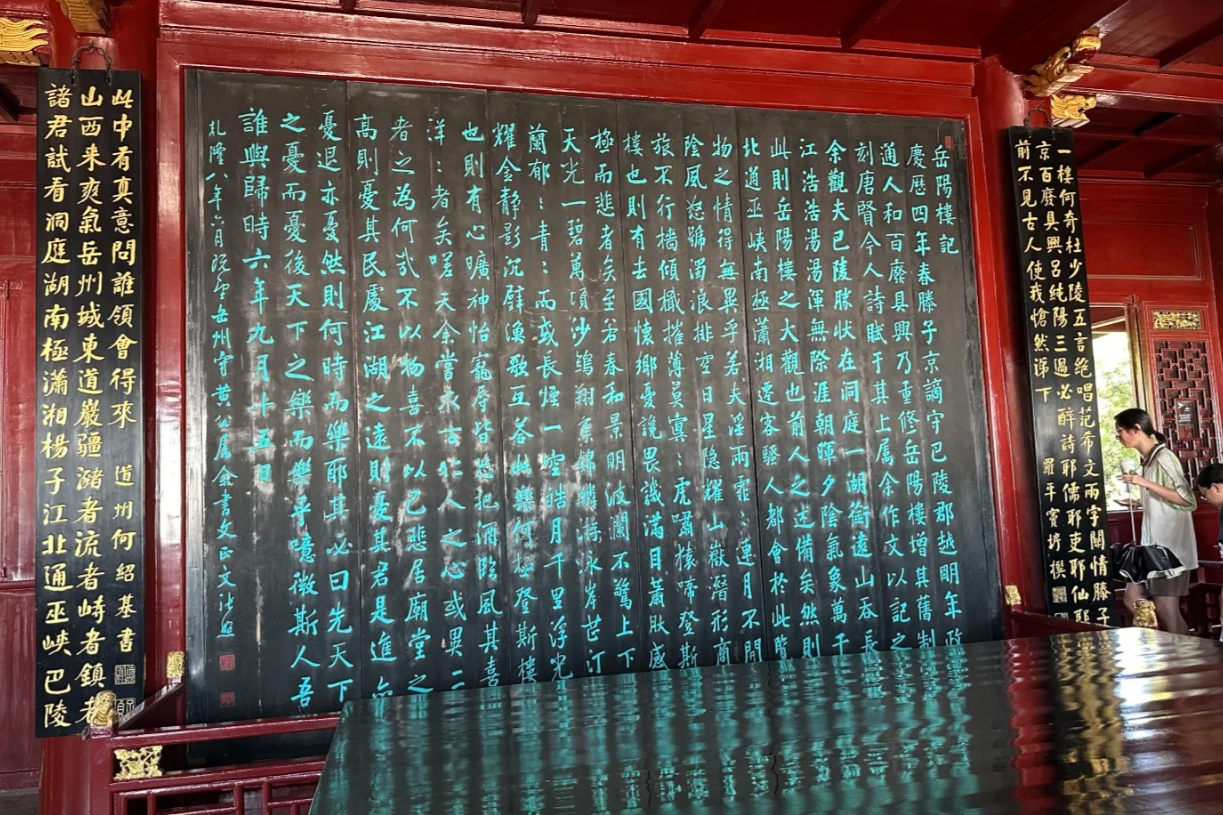 一樓何奇杜少陵五言絕唱范希文兩字關情滕子
京百廢具興呂純陽三過必醉詩耶儒耶吏耶仙耶
前不見古人使我愴然涕下 羅平竇垿撰
岳陽樓記
慶歷四年春滕子京謫守巴陵郡越明年政
通人和百廢具興乃重修岳陽樓增其舊制
刻唐賢今人詩賦于其上屬余作文以記之
余觀夫巴陵勝狀在洞庭一湖銜遠山吞長
江浩浩湯湯渾無際涯朝暉夕陰氣象萬千
此則岳陽樓之大觀也前人之述備矣然則
北通巫峽南極瀟湘遷客騷人都會於此覽
物之情得無異乎若夫淫雨霏〻連月不開
陰風怒號濁浪排空日星隱耀山嶽潛形商
旅不行檣傾檝摧薄暮冥〻虎嘯猿啼登斯
樓也則有去國懷鄉憂讒畏譏滿目蕭然感
極而悲者矣至若春和景明波瀾不驚上下
天光一碧萬頃沙鷗翔集錦鱗游泳岸芷汀
蘭郁〻青〻而或長煙一空皓月千里浮光
耀金靜影沉璧漁歌互答此樂何極登斯樓
也則有心曠神怡寵辱皆忘把酒臨風其喜
洋〻者矣嗟夫余嘗求古仁人之心或異二
者之為何哉不以物喜不以己悲居廟堂之
高則憂其民處江湖之遠則憂其君是進亦
憂退亦憂然則何時而樂耶其必曰先天下
之憂而憂後天下之樂而樂乎噫微斯人吾
誰與歸時六年九月十五日
乾隆八年六月岳州守黃公屬金書文正文張照
諸君試看洞庭湖南極瀟湘楊子江北通巫峽巴陵
山西來爽氣岳州城東道巖疆瀦者流者峙者鎮者
此中有真意問誰領會得來 道州何紹基書